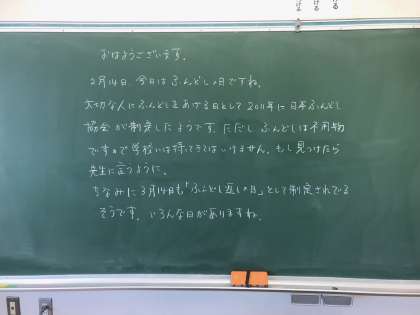 おはようございます。
2月14日、今日はふんどしの日ですね。
大切な人にふんどしをあげる日として2011年に日本ふんどし
協会が制定したようです。ただし、ふんどしは不用物
ですので学校には持ってきてはいけません。もし見つけたら
先生に言うように。
ちなみに3月14日も「ふんどし返しの日」として制定されている
そうです。いろんな日がありますね。